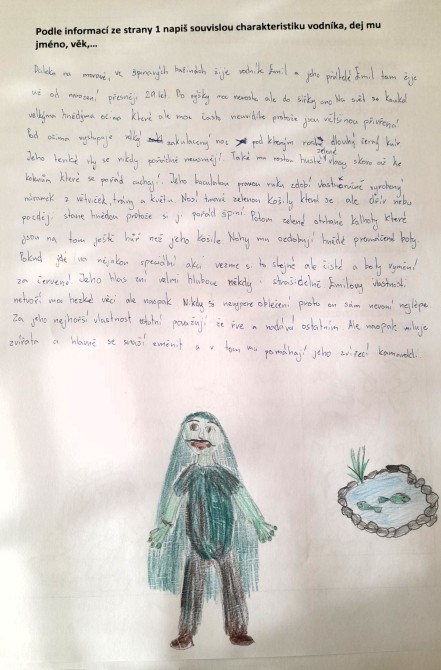 Podle informací ze strany 1 napiš souvislou charakteristiku vodníka, dej mu
jméno, věk,...
Daleko na moravě, ve špinavých bažinách žije vodník Emil a jeho přátelé Emil tam žije
už od narození přesněji 29 let. Do výšky moc neroste ale do šířky ano. Na svět se kouká
velkýma hnědýma očima které ale moc často neuvidíte protože jsou většinou přivřené
Pod očima vystupuje velký zakulacený nos pod kterým roste dlouhý černý knír
zelené
Jeho tenké rty se nikdy pořádně neusmějí. Také mu rostou husté vlasy skoro až ke
kolenům které se pořád cuchají. Jeho baculatou pravou ruku zdobí vlastnoručně vyrobený
náramek z větviček, trávy a květů. Nosí tmavě zelenou košily která se ale dřív nebo
později stane hnědou protože si jí pořád špiní. Potom zelené otrhané kalhoty které
jsou na tom ještě hůř než jeho košile. Nohy mu ozdobují hnědé promáčené boty
Pokud jde na nějakou speciální akci vezme si to stejné ale čisté a boty vymění
za červené! Jeho hlas zní velmi hluboce někdy strašidelně. Emilovy vlastnosti
netvoří moc hezké věci ale naopak. Nikdy si nevypere oblečení proto on sám nevoní nejlépe
Za jeho nejhorší vlastnost ostatní považují že řve a nadává ostatním. Ale naopak miluje
zvířata a hlavně se snaží změnit a v tom mu pomáhají jeho zvířecí kamarádi.